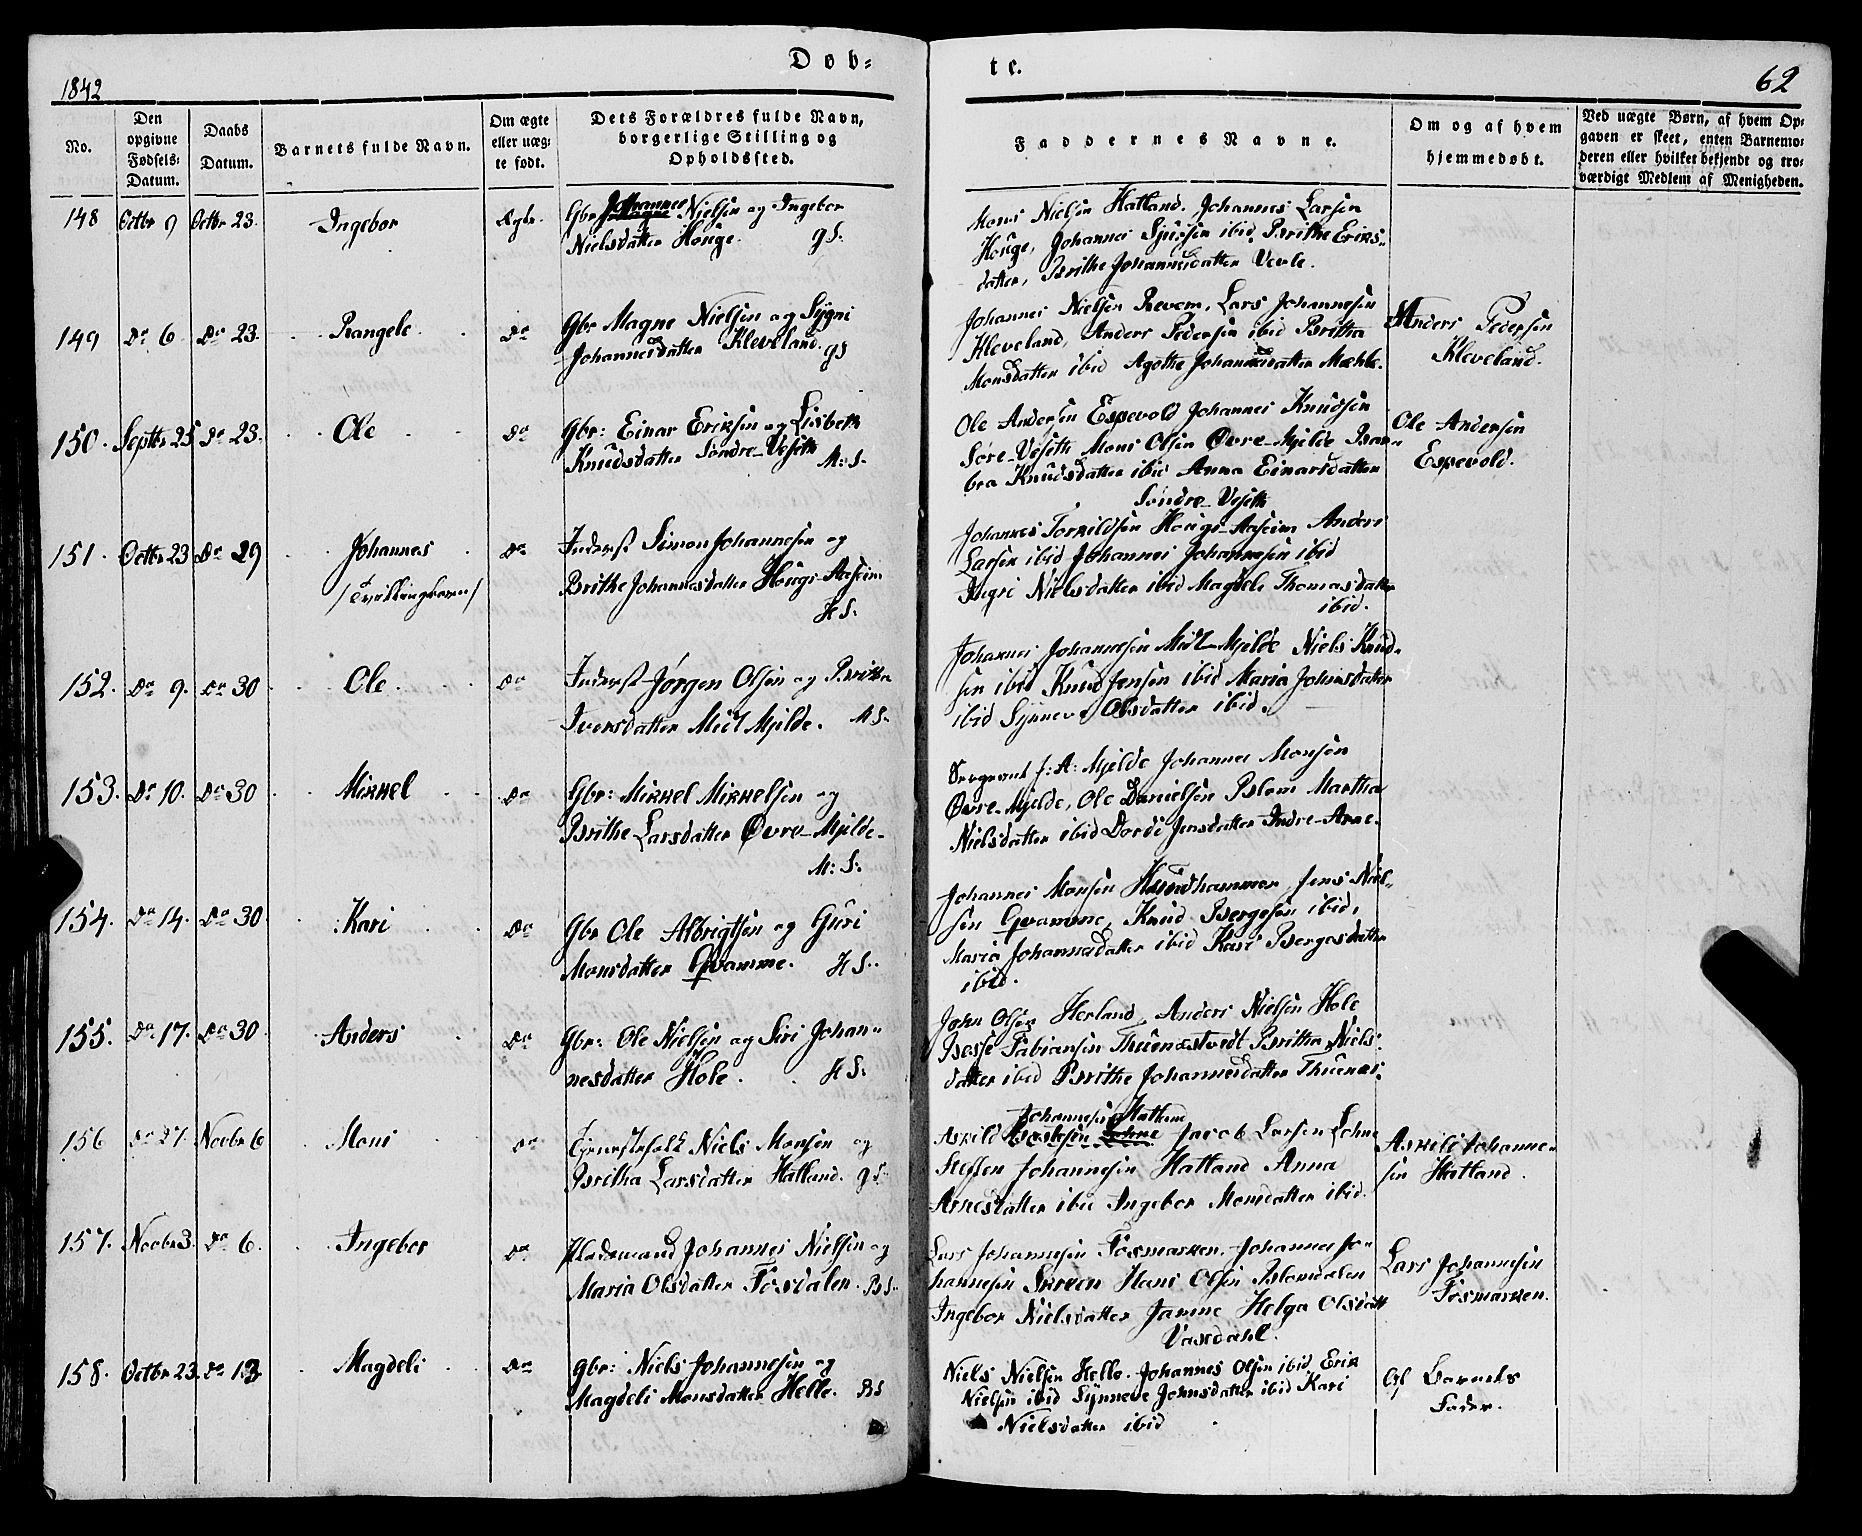 1842
Døb-
te.
62
No.
Den opgivne Fødsels-Datum.
Daabs Datum.
Barnets fulde Navn.
Om ægte eller uægte født.
Dets Forældres fulde Navn, borgerlige Stilling og Opholdssted.
Faddernes Navne.
Om og af hvem hjemmedøbt.
Ved uægte Børn, af hvem Op-
gaven er skeet, enten Barnemo-
deren eller hvilket bekjendt og tro-
værdigt Medlem af Menigheden.
148 Octbr 9 Octbr 23. Ingebor Ægte.
Gbr Johannes Nielsen og Ingebor
Nielsdatter Houge. GS.
Mons Nielsen Hatland. Johannes Larsen
Houge, Johannes Sjursen ibid. Brithe Eriks-
datter, Brithe Johannesdatter Vevle.
149 Do 6 Do 23. Rangele Do
Gbr Magne Nielsen og Sygni
Johannesdatter Kleveland. GS
Johannes Nielsen Revem, Lars Johannesen
Kleveland, Anders Pedersen ibid Britha
Monsdatter ibid Agothe Johannesdatter Mæhle.
Anders Pedersen
Kleveland.
150. Septbr 25 Do 23. Ole Do
Gbr: Einar Eriksen og Lisbeth
Knudsdatter Søndre-Veseth M:S.
Ole Andersen Espevold Johannes Knudsen
Søre-Veseth Mons Olsen Øvre-Mjelde Bar-
bra Knudsdatter ibid Anna Einarsdatter
Søndre-Veseth
Ole Andersen
Espevold.
151. Octbr 23 Do 29 Johannes Do
/Tvillingbarn/
Inderst Simon Johannesen og
Brithe Johannesdatter Hougs-Aaseim
HS.
Johannes Torkildsen Hougs-Aaseim Anders
Larsen ibid Johannes Johannesen ibid
Ingri Nielsdatter ibid Magdele Thomasdatter
ibid.
152. Do 9. Do 30 Ole Do
Inderst Jørgen Olsen og Britha
Iversdatter Midt Mjelde. MS.
Johannes Johannesen Midt-Mjelde Niels Knud-
sen ibid Knud Jensen ibid Maria Johnsdatter
ibid Synneve Olsdatter ibid.
153. Do 10. Do 30 Mikkel Do
Gbr: Mikkel Mikkelsen og
Brithe Larsdatter Øvre-Mjelde.
M:S.
Sergeant J: A: Mjelde Johannes Monsen
Øvre-Mjelde, Ole Danielsen Blom Martha
Nielsdatter ibid Dordi Jensdatter Indre-Arne.
154. Do 14. Do 30. Kari Do
Gbr Ole Albrigtsen og Guri
Monsdatter Qvamme. HS.
Johannes Monsen Jens Niel-
sen Qvamme, Knud Bergesen ibid,
Maria Johannesdatter ibid Kari Bergesdatter
ibid.
155. Do 17. Do 30. Anders Do
Gbr: Ole Nielsen og Siri Johan-
nesdatter Hole. HS.
John Olsen Herland, Anders Nielsen Hole
Basse Fabiansen Thuenæstvedt Britha Niels-
datter ibid Brithe Johannesdatter Thuenæs.
156 Do 27. Novbr 6 Mons Do
Tjenestefolk Niels Monsen og
Britha Larsdatter Hatland. GS.
Johannesen Hatland
Askild Lohne Jacob Larsen Lohne
Steffen Johannesen Hatland Anna
Arnesdatter ibid Ingebor Monsdatter ibid.
Askild Johanne-
sen Hatland.
157. Novbr 3. Do 6. Ingebor Do
Pladsmand Johannes Nielsen og
Maria Olsdatter Fosdalen. BS.
Lars Johannesen Fosmarken. Johannes Jo-
hannesen Skreen Hans Olsen Blomdalen
Ingebor Nielsdatter Jamne Helga Olsdatt
Vaxdahl.
Lars Johannesen
Fosmarken.
158. Octbr 23. Do 13. Magdeli Do
Gbr: Niels Johannesen og
Magdeli Monsdatter Helle. BS
Niels Nielsen Helle. Johannes Olsen ibid, Erik
Nielsen ibid Synneve Johnsdatter ibid Kari
Nielsdatter ibid
Af Barnets
Fader.